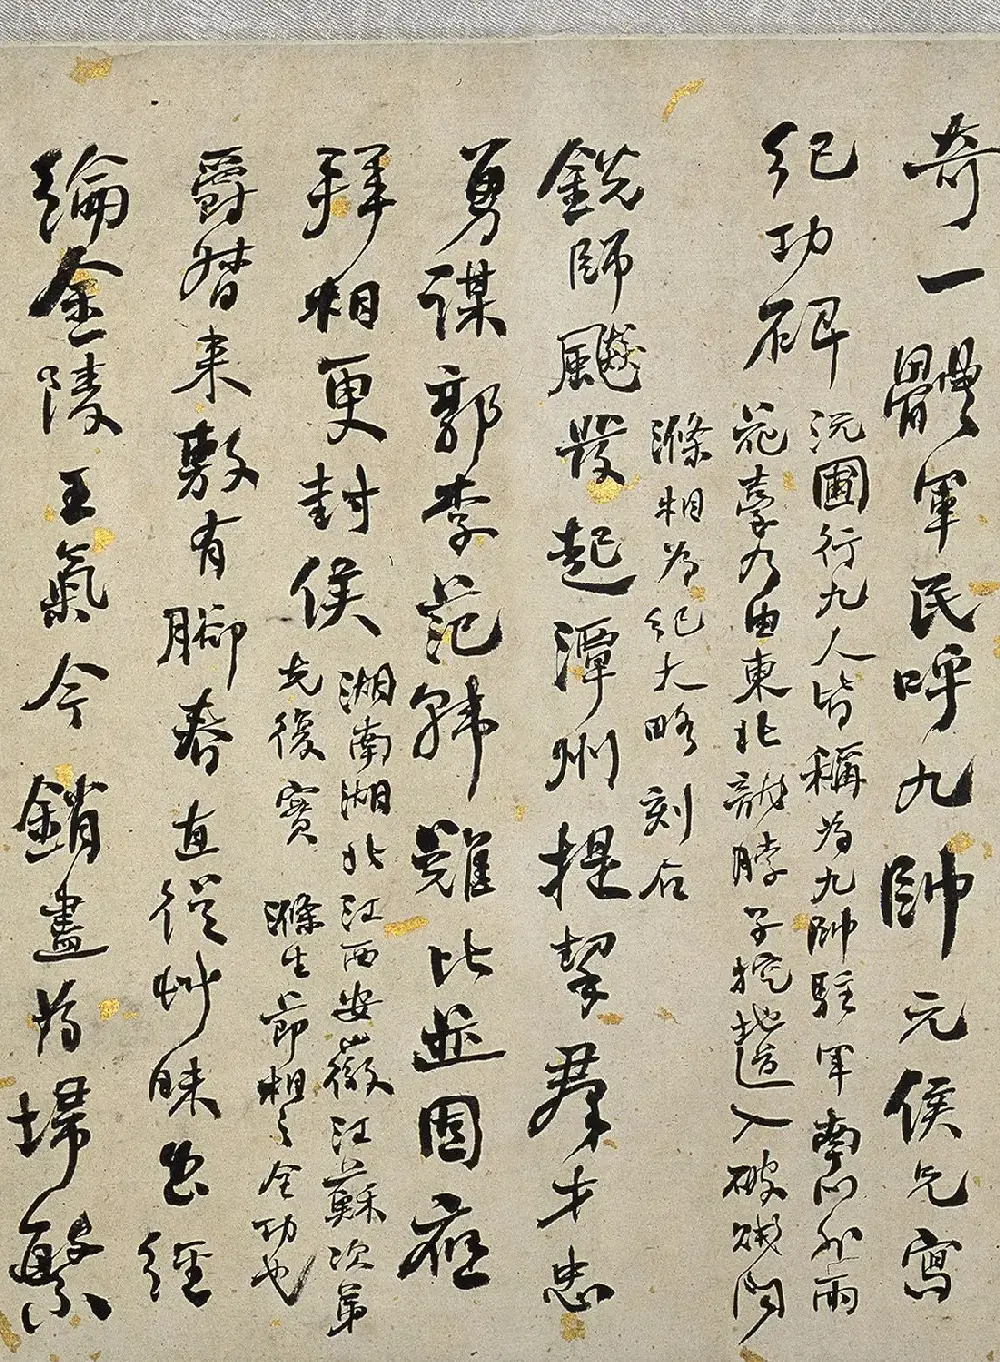 奇一體軍民呼九帥元侯兄寫
紀功碑
沅圃行九人皆稱為九帥駐軍南門外雨
花臺乃由東北龍脖子挖地道入破城開
滌相為紀大略刻石
銳師飈發起潭州提挈羣才忠
勇謀郭李范韓雖比並固應
拜相更封侯
湖南湖北江西安徽江蘇次第
克復實滌生節相之全功也
爵相來敷有腳春直從艸昧出經
綸金陵王氣今銷盡為埽繁